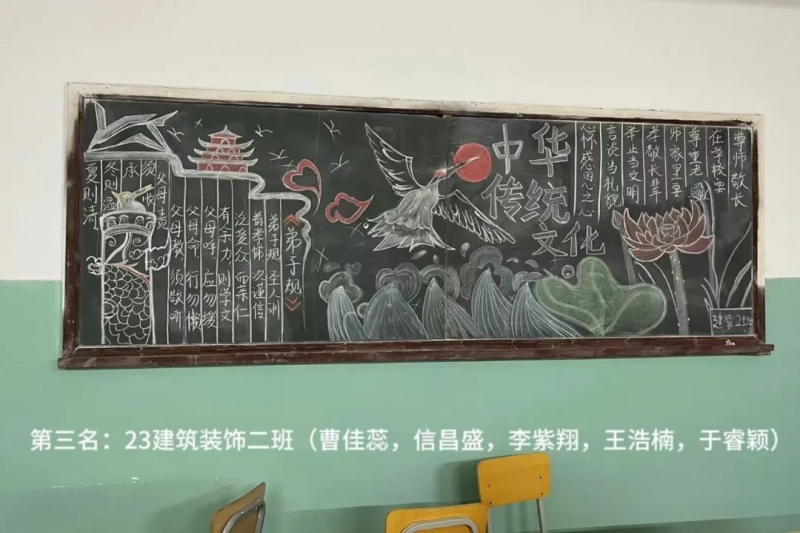 尊师敬长
在学校要
尊重老
师家里要
孝敬长辈
举止当文明
言谈当礼貌
心怀感恩之心
中华
传统
文化
《弟子规》
弟子规 圣人训
首孝悌 次谨信
泛爱众 而亲仁
有余力 则学文
父母呼 应勿缓
父母命 行勿懒
父母教 须敬听
父母责
须顺
承
冬则温
夏则清
第三名：23建筑装饰二班（曹佳蕊，信昌盛，李紫翔，王浩楠，于睿颖）